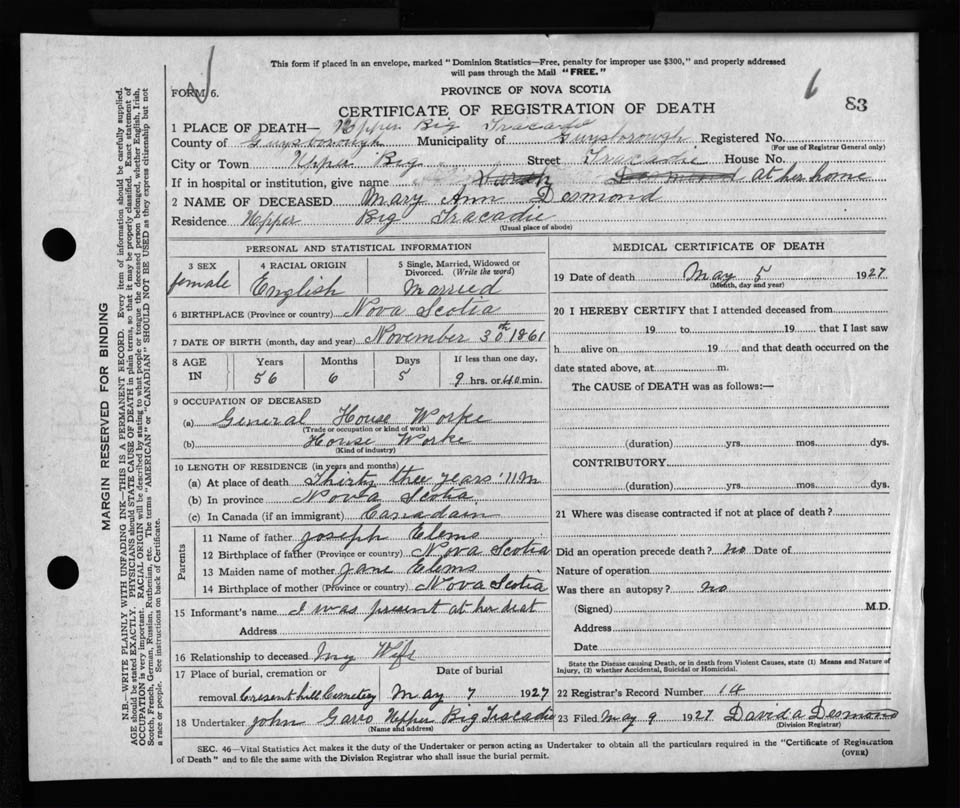 This form if placed in an envelope, marked "Dominion Statistics—Free, penalty for improper use $300," and properly addressed
will pass through the Mail "FREE."
FORM 6.
PROVINCE OF NOVA SCOTIA
6
83
CERTIFICATE OF REGISTRATION OF DEATH
1 PLACE OF DEATH— Upper Big Tracadie
County of Guysborough Municipality of Guysborough Registered No.
(For use of Registrar General only)
City or Town Upper Big Street Tracadie House No.
If in hospital or institution, give name Desmond at her home
2 NAME OF DECEASED Mary Ann Desmond
Residence Upper Big Tracadie
(Usual place of abode)
PERSONAL AND STATISTICAL INFORMATION
3 SEX
female
4 RACIAL ORIGIN
English
5 Single, Married, Widowed or
Divorced. (Write the word)
Married
6 BIRTHPLACE (Province or country) Nova Scotia
7 DATE OF BIRTH (month, day and year) November 30th 1861
8 AGE
IN
Years Months Days If less than one day,
56 6 5 9 hrs. or 40 min.
9 OCCUPATION OF DECEASED
(a) General House Worke
(Trade or occupation or kind of work)
(b) House Worke
(Kind of industry)
10 LENGTH OF RESIDENCE (in years and months)
(a) At place of death Thirty thee years 11 m
(b) In province Nova Scotia
(c) In Canada (if an immigrant) Canadain
Parents
11 Name of father Joseph Elems
12 Birthplace of father (Province or country) Nova Scotia
13 Maiden name of mother Jane Elems
14 Birthplace of mother (Province or country) Nova Scotia
15 Informant's name I was present at her deat
Address
16 Relationship to deceased my Wife
17 Place of burial, cremation or
Date of burial
removal Cresent hill Cemetey May 7 1927
18 Undertaker John Garro Upper Big Tracadie
(Name and address)
MEDICAL CERTIFICATE OF DEATH
19 Date of death May 5 1927
(Month, day and year)
20 I HEREBY CERTIFY that I attended deceased from
19 to 19 that I last saw
h alive on 19 and that death occurred on the
date stated above, at m.
The CAUSE of DEATH was as follows:—
(duration) yrs. mos. dys.
CONTRIBUTORY
(duration) yrs. mos. dys.
21 Where was disease contracted if not at place of death?
Did an operation precede death? no Date of
Nature of operation
Was there an autopsy? no
(Signed) M.D.
Address
Date
State the Disease causing Death, or in death from Violent Causes, state (1) Means and Nature of
Injury, (2) whether Accidental, Suicidal or Homicidal.
22 Registrar's Record Number 14
23 Filed May 9 1927 David a Desmond
(Division Registrar)
SEC. 46—Vital Statistics Act makes it the duty of the Undertaker or person acting as Undertaker to obtain all the particulars required in the "Certificate of Registration
of Death" and to file the same with the Division Registrar who shall issue the burial permit.
(OVER)
MARGIN RESERVED FOR BINDING
N.B.—WRITE PLAINLY WITH UNFADING INK—THIS IS A PERMANENT RECORD. Every item of information should be carefully supplied.
AGE should be stated EXACTLY. PHYSICIANS should STATE CAUSE OF DEATH in plain terms, so that it may be properly classified. Exact statement of
OCCUPATION is very important. RACIAL ORIGIN will be described by stating to what people or tongue the deceased person belonged, whether English, Irish,
Scotch, French, German, Russian, Ruthenian, etc. The terms "AMERICAN" or "CANADIAN" SHOULD NOT BE USED as they express citizenship but not
a race or people. See instructions on back of Certificate.